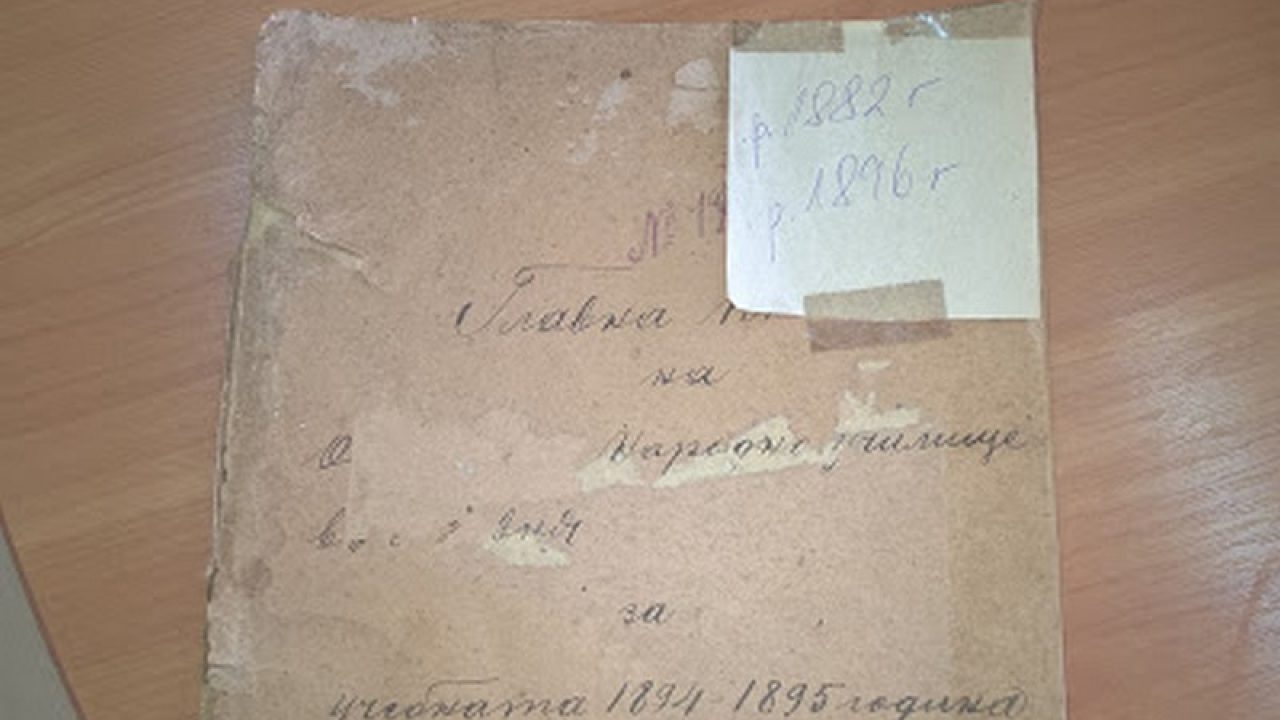 р. 1882 г
р. 1896 г
№
Главна
на
Народно училище
за
учебната 1894-1895 година